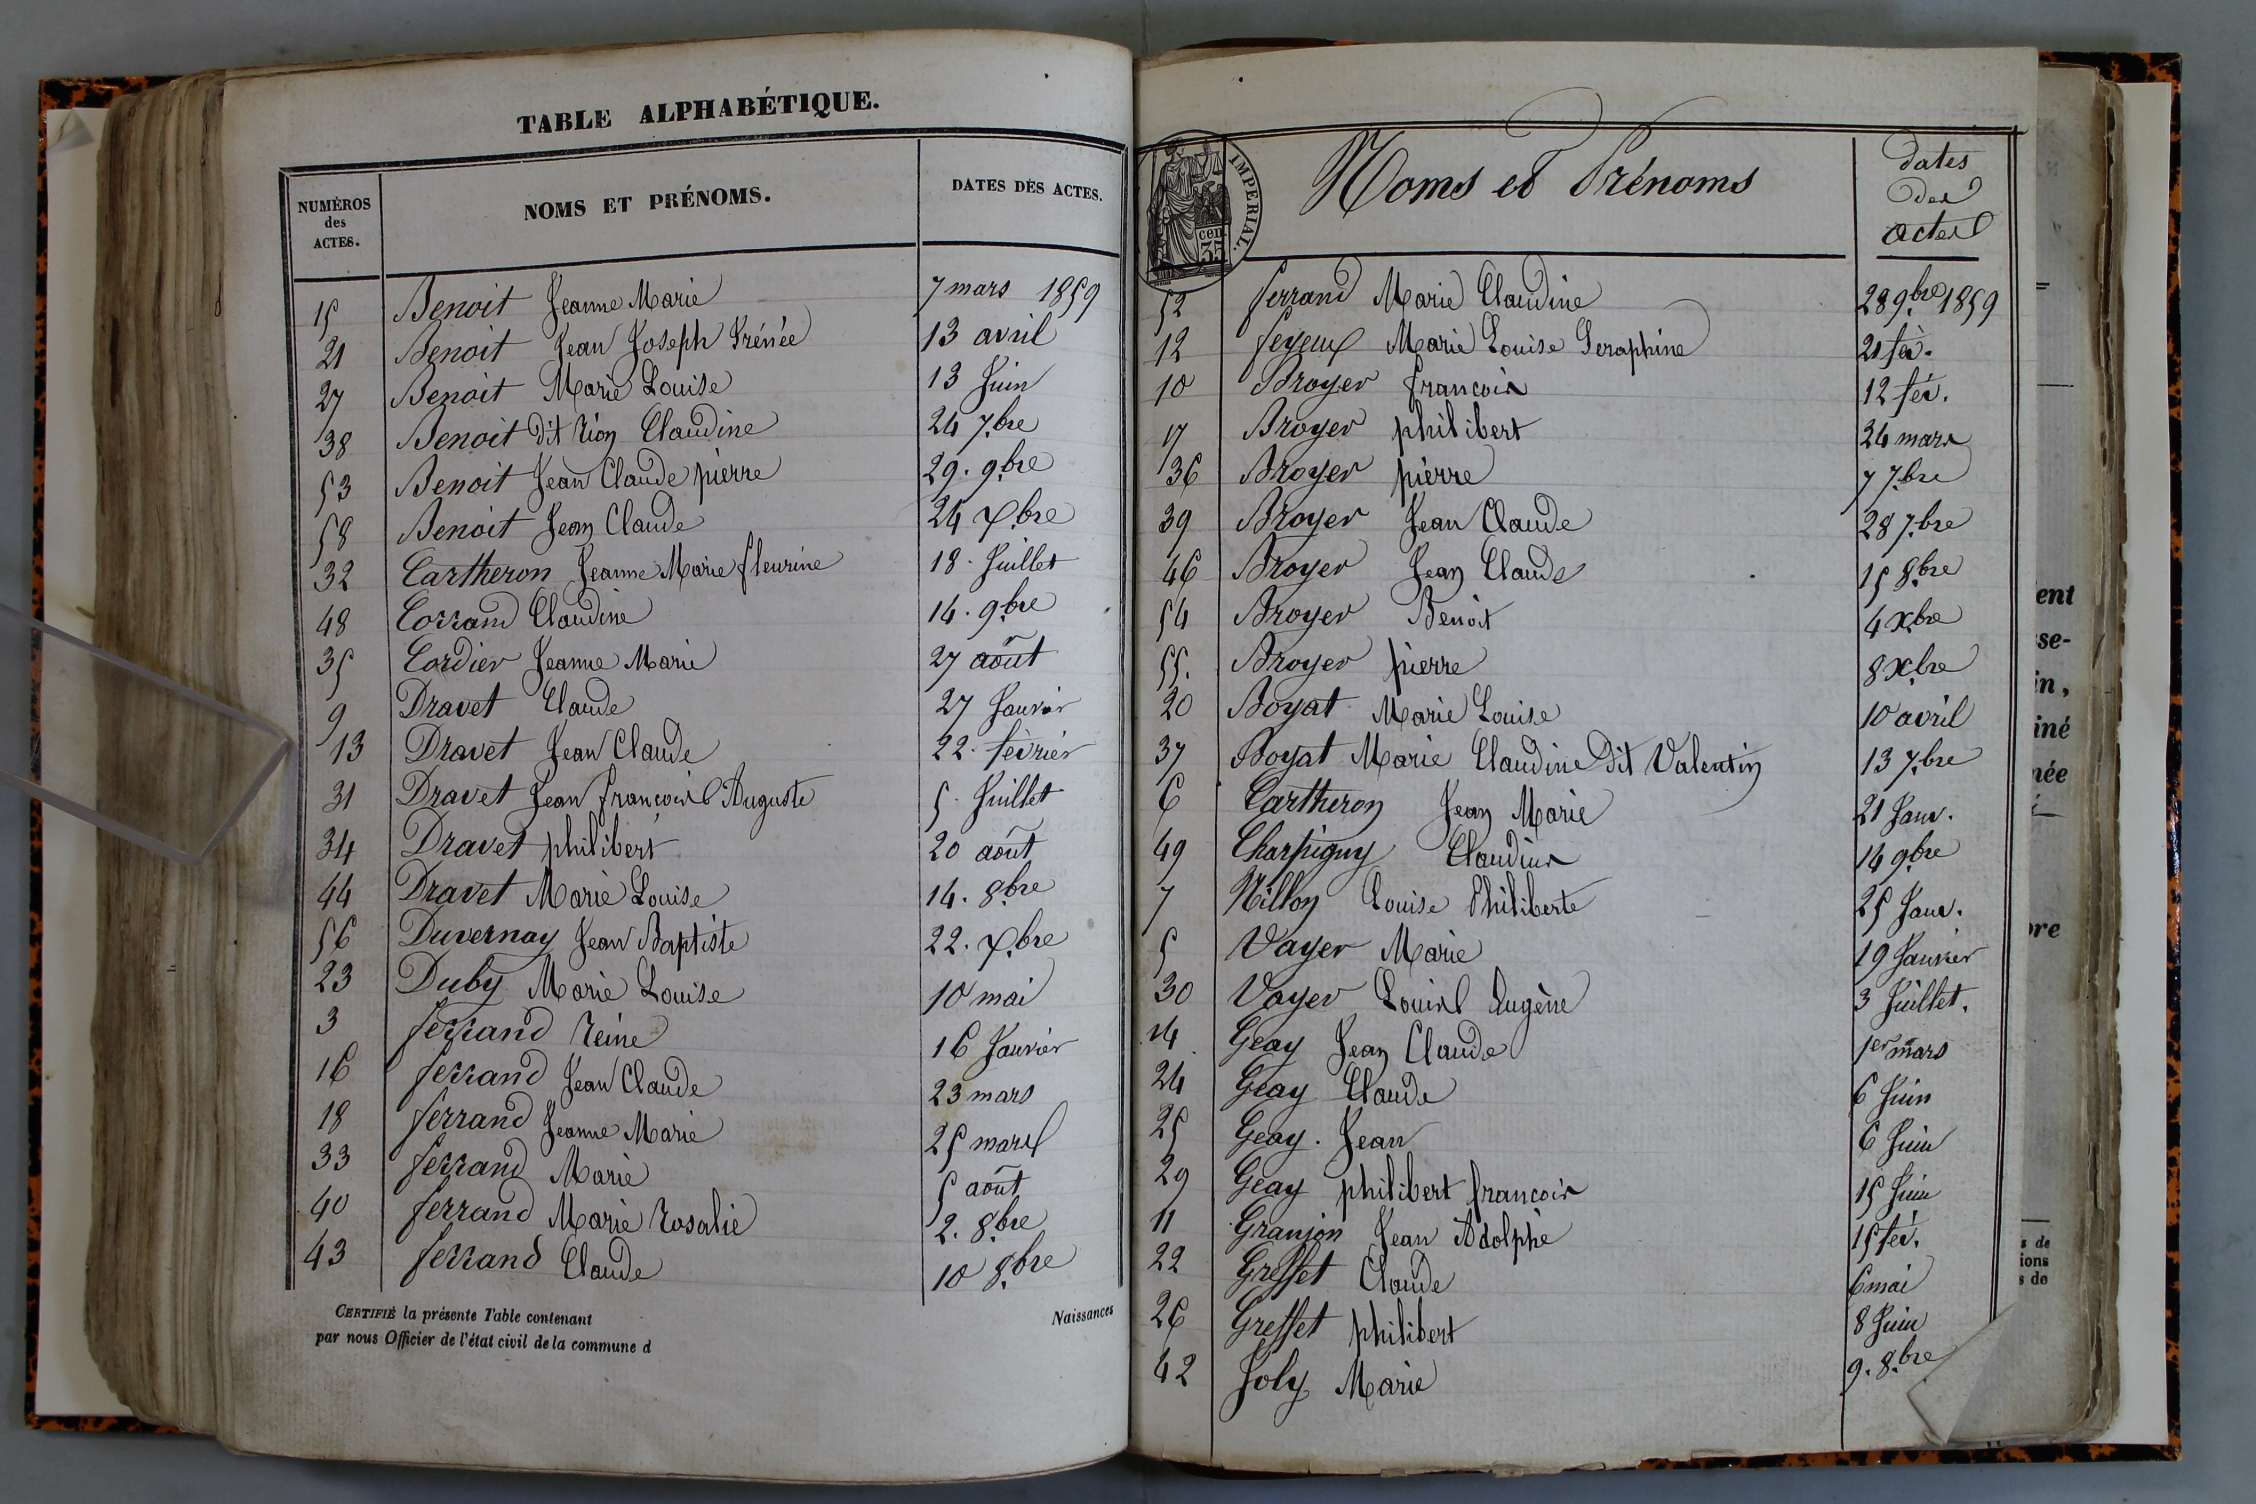 TABLE ALPHABÉTIQUE.
NUMÉROS
des
ACTES.
NOMS ET PRÉNOMS.
DATES DES ACTES.
15 Benoit Jeanne Marie 7 mars 1859
21 Benoit Jean Joseph Irénée 13 avril
27 Benoit Marie Louise 13 Juin
38 Benoit dit Rion Claudine 24 7.bre
53 Benoit Jean Claude pierre 29. 9.bre
58 Benoit Jean Claude 24 X.bre
32 Cartheron Jeanne Marie fleurine 18. Juillet
48 Corrand Claudine 14. 9.bre
35 Cordier Jeanne Marie 27 août
9 Dravet Claude 27 Janvier
13 Dravet Jean Claude 22. février
31 Dravet Jean françois Auguste 5. Juillet
34 Dravet philibert 20 août
44 Dravet Marie Louise 14. 8.bre
56 Duvernay Jean Baptiste 22. X.bre
23 Duby Marie Louise 10 mai
3 ferrand Reine 16 Janvier
16 ferrand Jean Claude 23 mars
18 ferrand Jeanne Marie 25 mars
33 ferrand Marie 5 août
40 ferrand Marie Rosalie 2. 8.bre
43 ferrand Claude 10 8.bre
CERTIFIÉ la présente Table contenant Naissances
par nous Officier de l'état civil de la commune d
IMPERIAL.
cen
35
Noms et Prénoms
dates
des
actes
52 ferrand Marie Claudine 28 9.bre 1859
12 feyeux Marie Louise Seraphine 21 fév.
10 Broyer francois 12 fév.
17 Broyer philibert 24 mars
36 Broyer pierre 7 7.bre
39 Broyer Jean Claude 28 7.bre
46 Broyer Jean Claude 15 8.bre
54 Broyer Benoit 4 X.bre
55. Broyer pierre 8 X.bre
20 Boyat Marie Louise 10 avril
37 Boyat Marie Claudine dit Valentin 13 7.bre
6 Cartheron Jean Marie 21 Janv.
49 Charpigny Claudius 14 9.bre
7 Nillon Louise Philiberte 25 Janv.
5 Vayer Marie 19 Janvier
30 Vayer Louis Eugène 3 Juillet.
14 Geay Jean Claude 1er mars
24 Geay Claude 6 Juin
25 Geay. Jean 6 Juin
29 Geay philibert francois 15 Juin
11 Granjon Jean Adolphe 15 fév.
22 Greffet Claude 6 mai
26 Greffet philibert 8 Juin
42 Joly Marie 9. 8.bre
ent
se-
in,
iné
née
re
s de
ions
s de